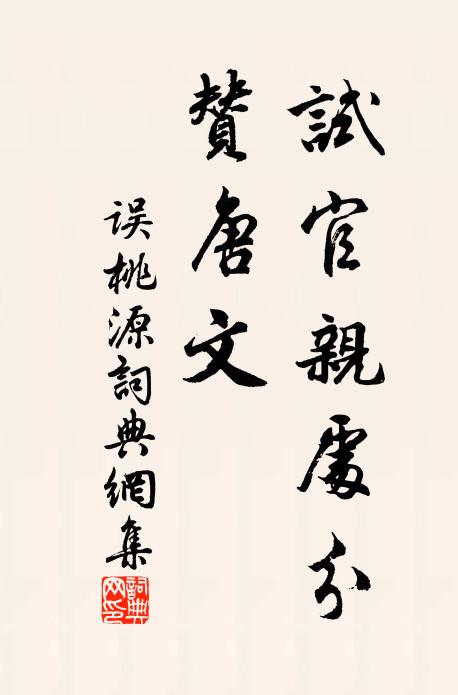 試官親處分
贊唐文
误桃源詞典網集
詞典网印